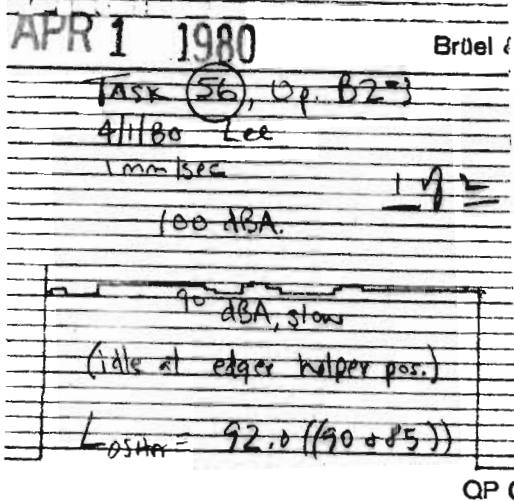 APR 1 1980
Brüel &
TASK 56, Op. B2-3
4/1/80 Lee
1 mm/sec
1 of 2
100 dBA.
90 dBA, slow
(idle at edger helper pos.)
LOSHA = 92.0 ((90 & 85))
QP